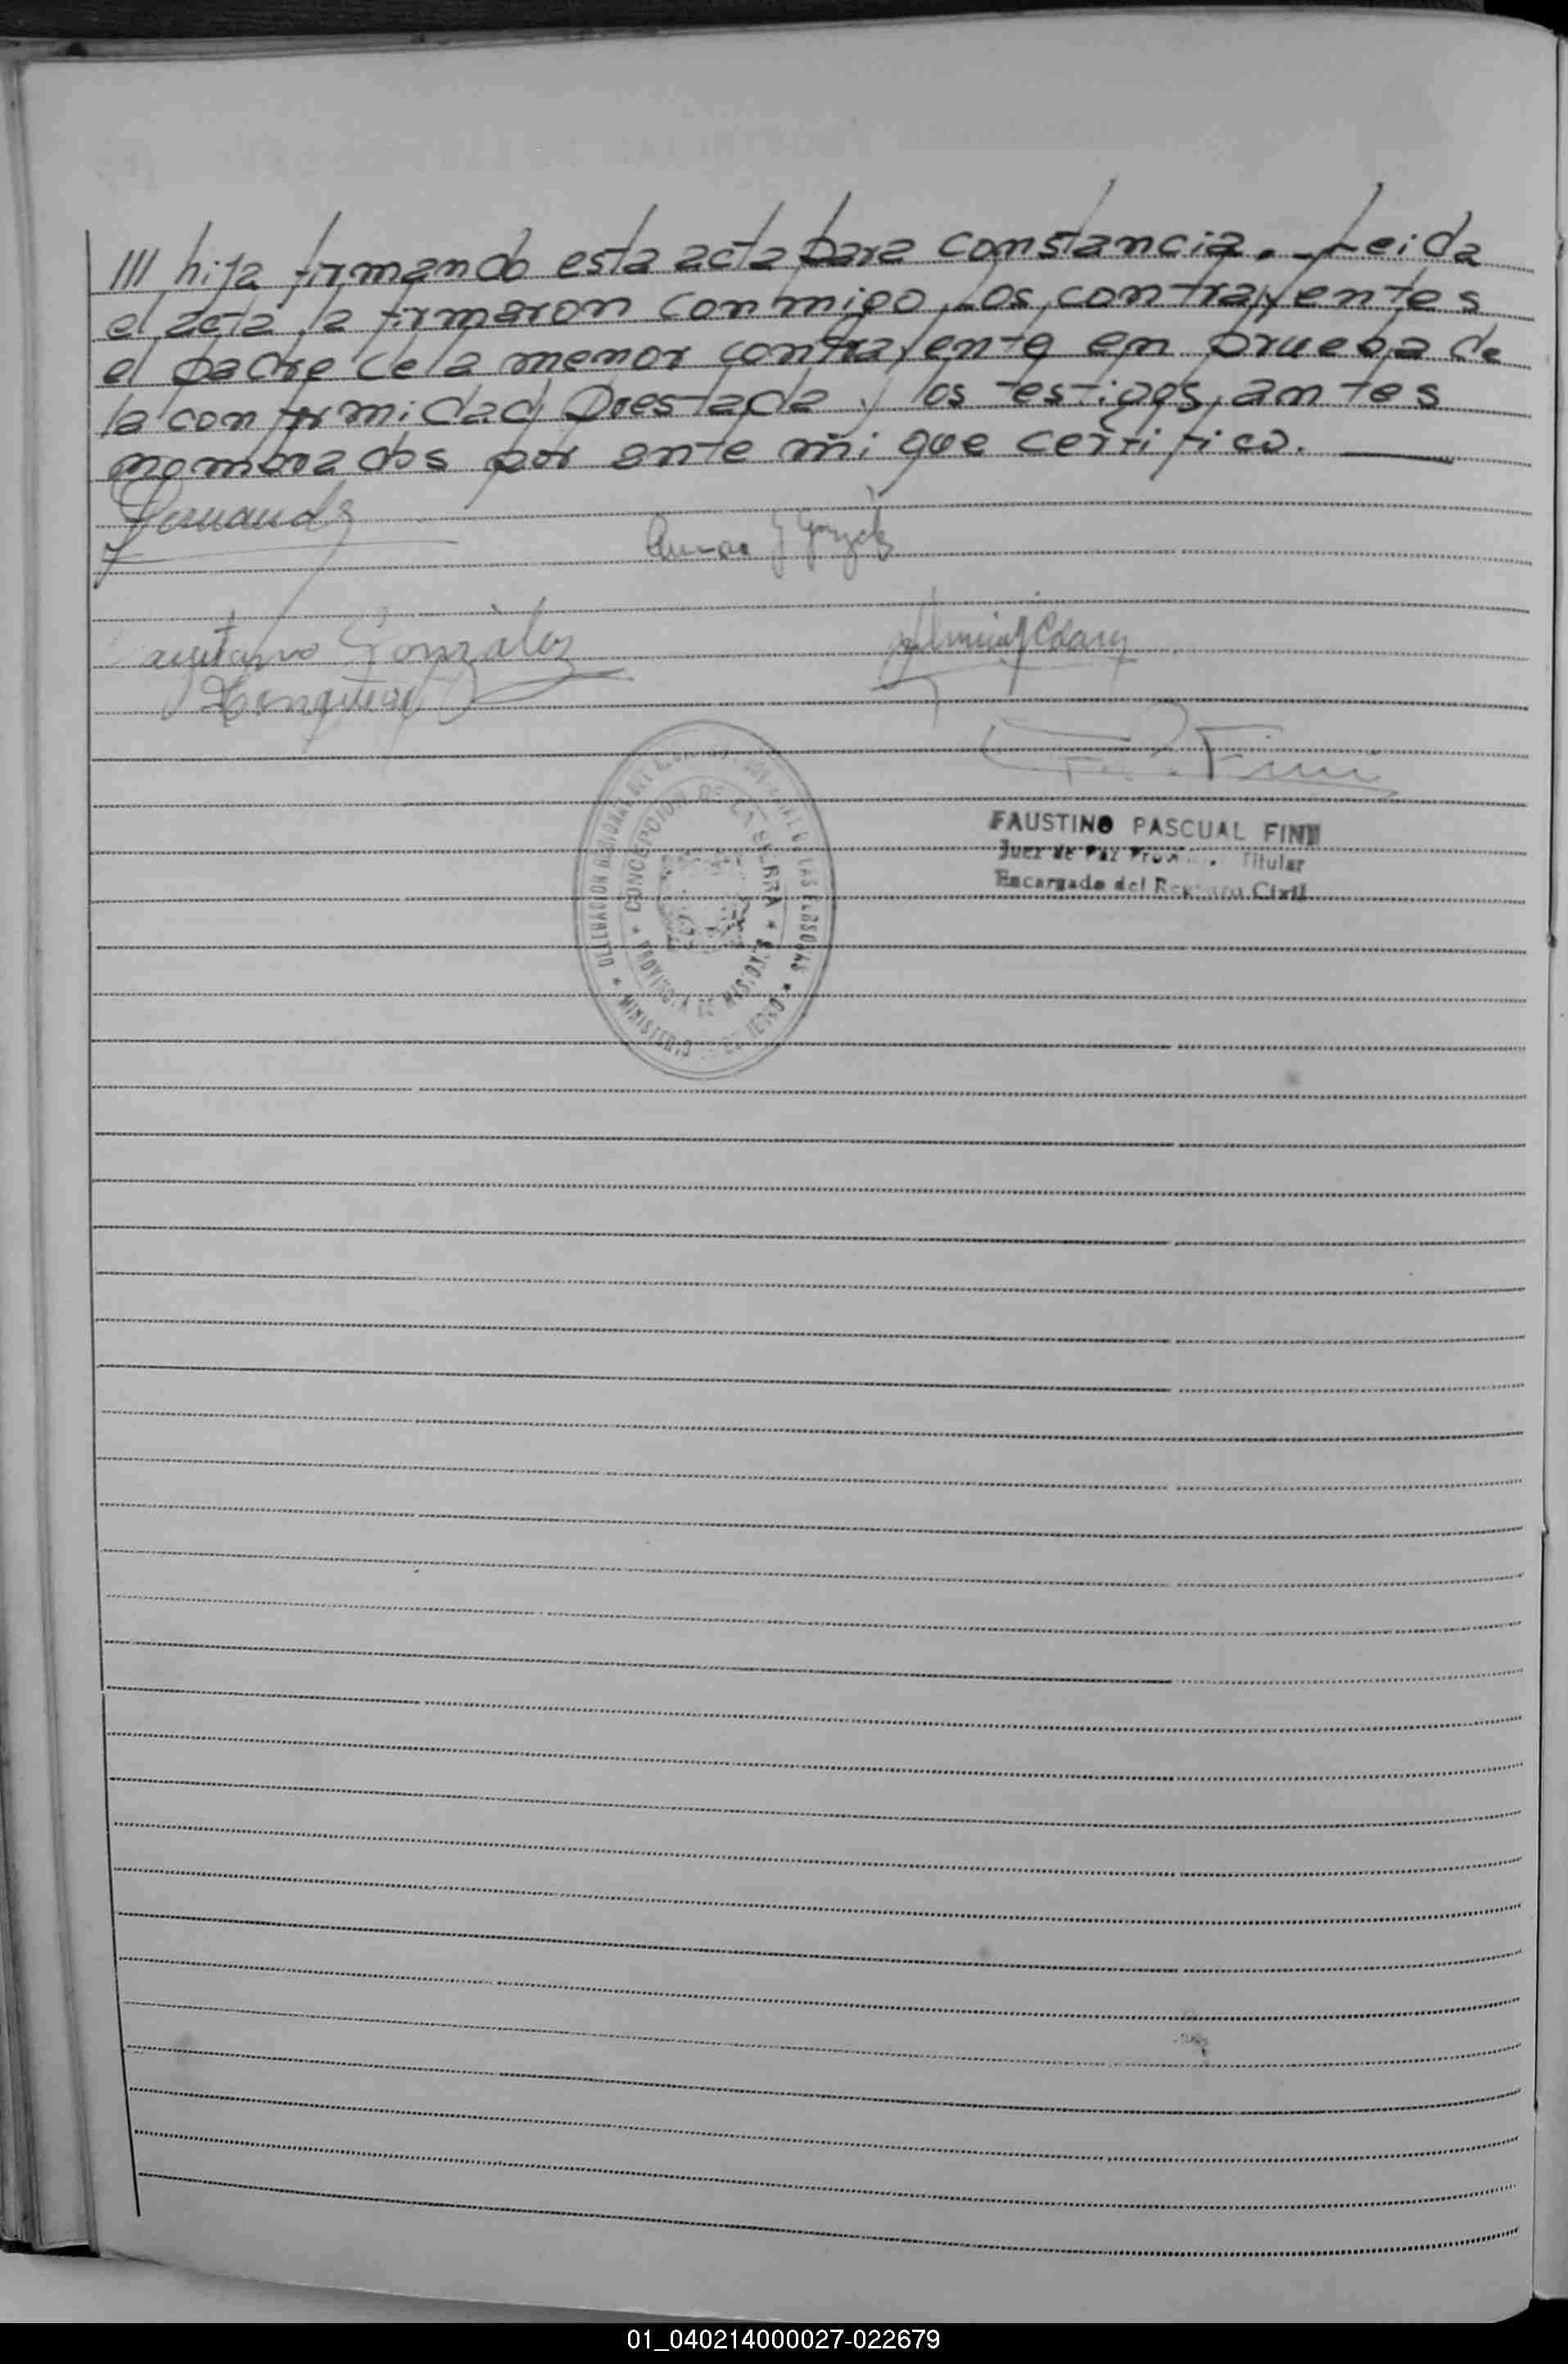 /// hija firmando esta acta para constancia. - Leida
el acta, la firmaron conmigo, los contrayentes
el padre de la menor contrayente en prueba de
la conformidad prestada y los testigos antes
nombrados por ante mi que certifico. ———
Fernandz
Gonzalez
Cayetano Gonzalez
FAUSTINO PASCUAL FINI
Juez de Paz Titular
Encargado del Registro Civil
DELEGACION * CONCEPCION DE LA SIERRA *
PROVINCIA DE MISIONES
DE LAS PERSONAS * MINISTERIO
01_040214000027-022679